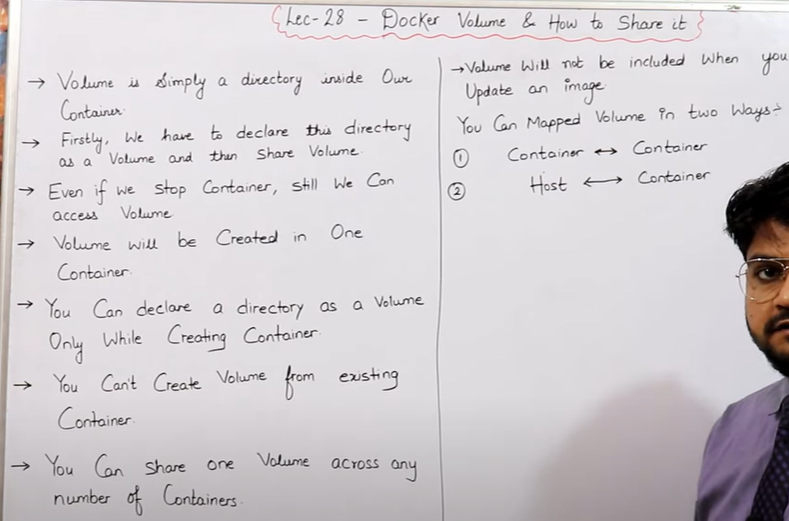 Lec-28 - Docker Volume & How to Share it
→ Volume is Simply a directory inside Our
Container.
→ Firstly, We have to declare this directory
as a Volume and then Share Volume.
→ Even if we Stop Container, Still We Can
access Volume
→ Volume will be Created in One
Container.
→ You Can declare a directory as a Volume
Only While Creating Container.
→ You Can't Create Volume from existing
Container.
→ You Can Share one Volume across any
number of Containers.
→ Volume Will not be included When you
Update an image.
You Can Mapped Volume in two Ways:-
① Container ↔ Container
② Host ↔ Container